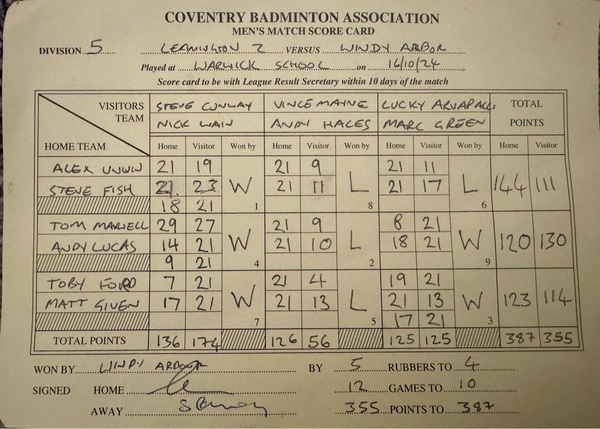 COVENTRY BADMINTON ASSOCIATION
MEN'S MATCH SCORE CARD
DIVISION 5 LEAMINGTON 2 VERSUS WINDY ARBOR
Played at WARWICK SCHOOL on 16/10/24
Score card to be with League Result Secretary within 10 days of the match
VISITORS TEAM STEVE CONWAY VINCE MAYNE LUCKY TOTAL POINTS
NICK WAIN ANDY HALES MARC GREEN
HOME TEAM Home Visitor Won by Home Visitor Won by Home Visitor Won by Home Visitor
ALEX UNWIN 21 19 21 9 21 11
STEVE FISH 21 23 W 1 21 11 L 8 21 17 L 6 144 111
18 21
TOM MAXWELL 29 27 21 9 8 21
ANDY LUCAS 14 21 W 4 21 10 L 2 18 21 W 9 120 130
9 21
TOBY FORD 7 21 21 4 19 21
MATT GIVEN 17 21 W 7 21 13 L 5 21 13 W 3 123 114
17 21
TOTAL POINTS 136 174 126 56 125 125 387 355
WON BY WINDY ARBOR BY 5 RUBBERS TO 4
SIGNED HOME 12 GAMES TO 10
AWAY 355 POINTS TO 387